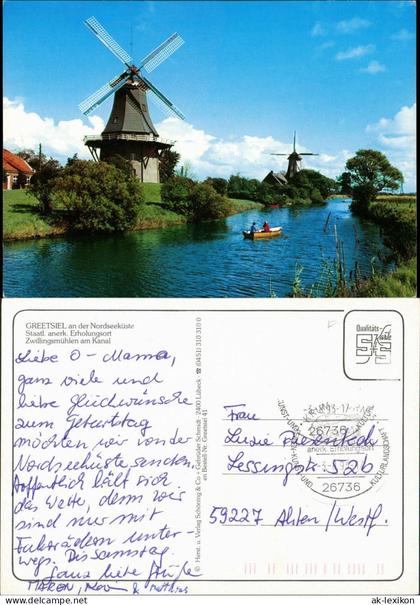 GREETSIEL an der Nordseeküste
Staatl. anerk. Erholungsort
Zwillingsmühlen am Kanal
Liebe O-Mama,
ganz viele und
liebe Glückwünsche
zum Geburtstag
möchten wir von der
Nordseeküste senden.
Hoffentlich hält sich
das Wetter, denn wir
sind nur mit
Fahrrädern unter-
wegs. Bis Samstag.
Ganz liebe Grüße
MAREN, & Matthias
© Horst. u. Verlag Schöning & Co + Gebrüder Schmidt · 2400 Lübeck ☎ (0451) 310 310 0
Best.-Nr. Greetsiel 41
Qualitäts-
Karte
26736
anerk. Erholungsort
26736
Frau
Lessingstr. 52b
59227 Ahlen/Westf.
ak-lexikon
ak-lexikon.com